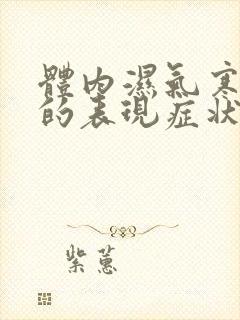 體內濕氣寒
的表現症狀
紫蕙